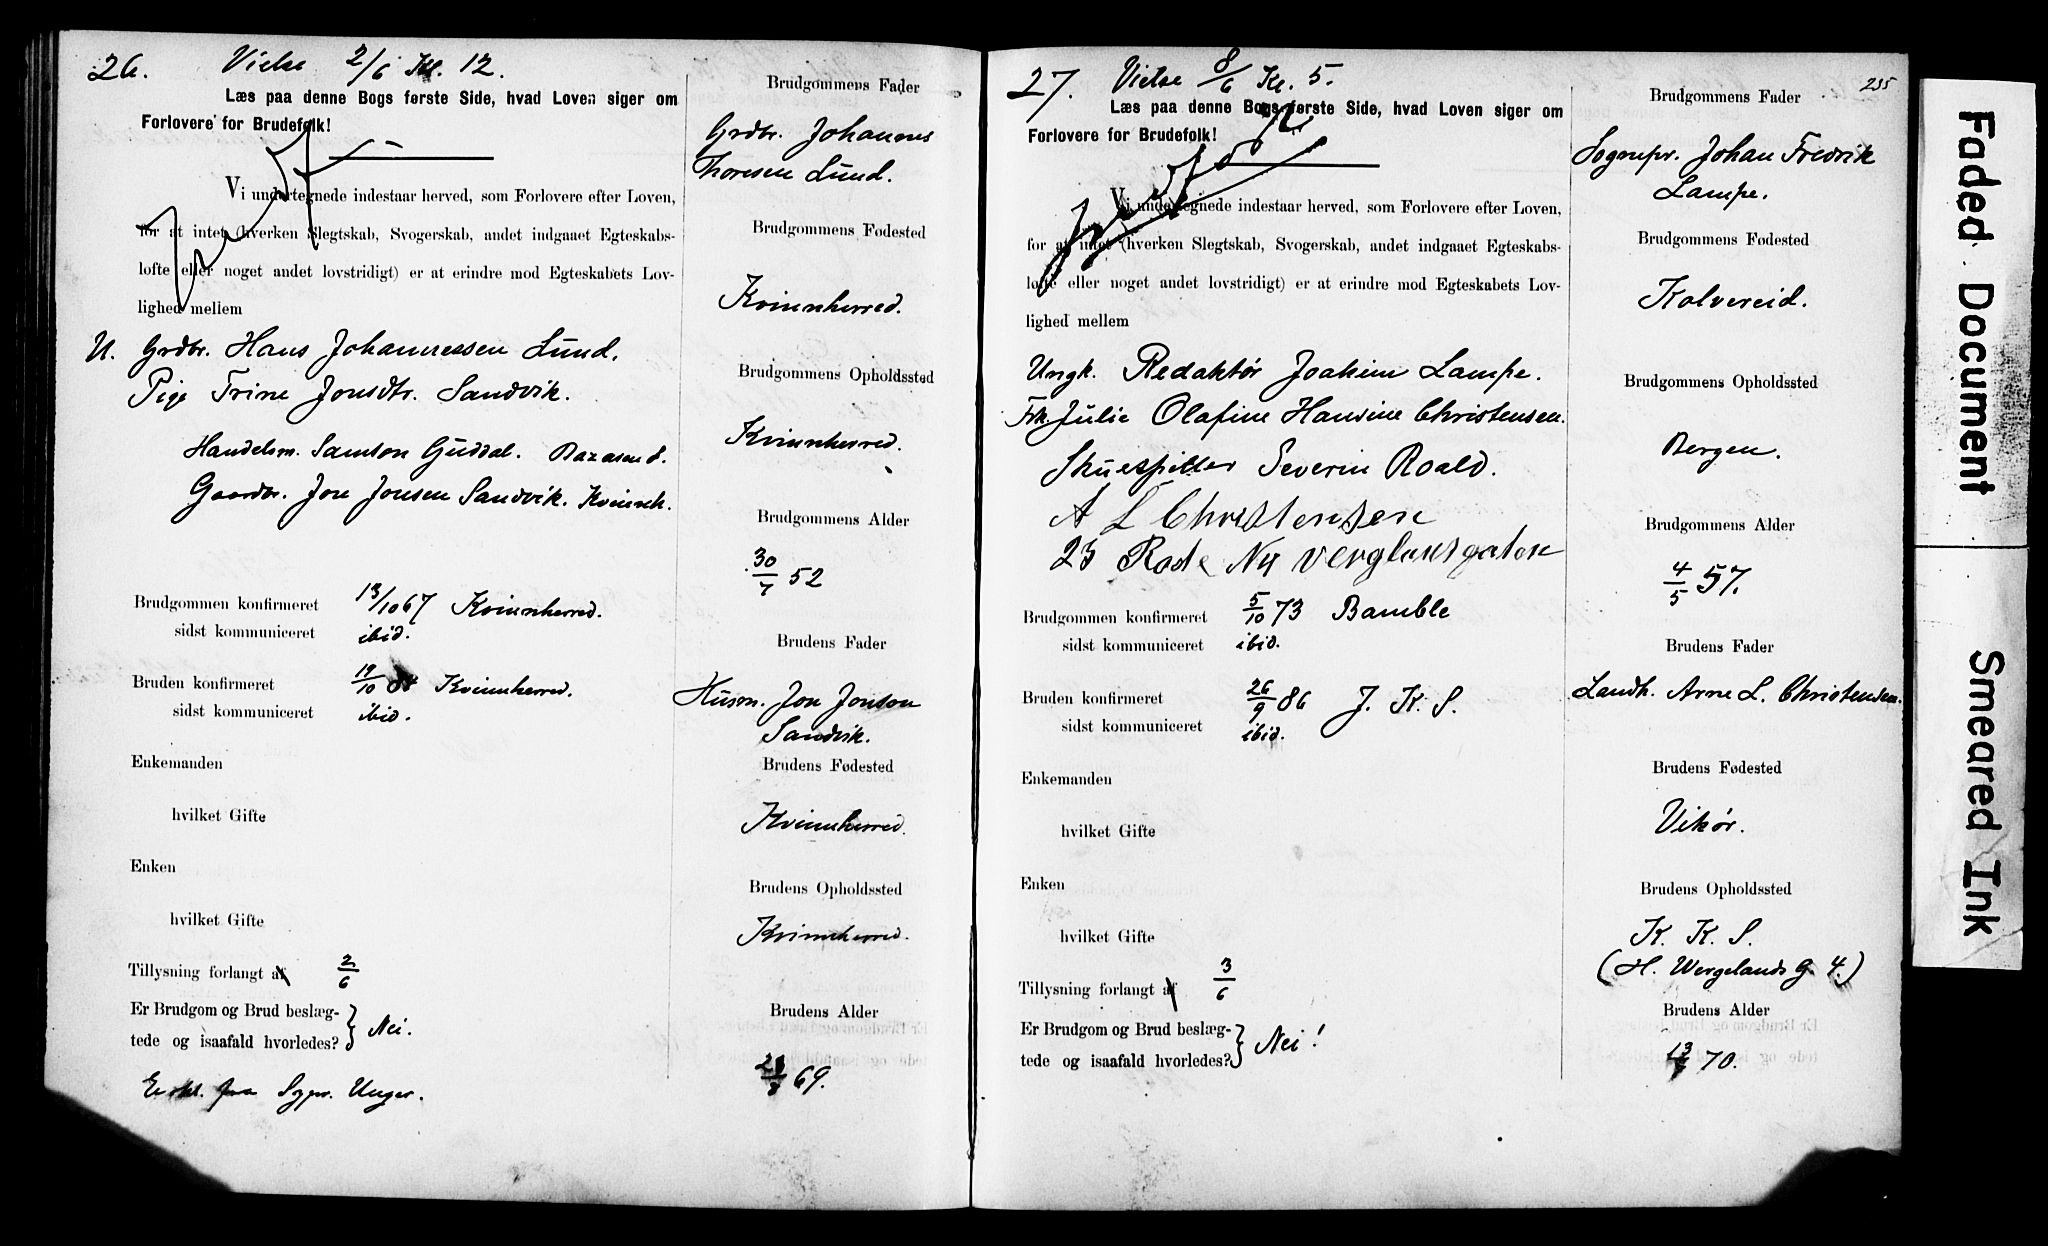 26. Vielse 2/6 Kl. 12.
Læs paa denne Bogs første Side, hvad Loven siger om
Forlovere for Brudefolk!
Vi undertegnede indestaar herved, som Forlovere efter Loven,
for at intet (hverken Slegtskab, Svogerskab, andet indgaaet Egteskabs-
løfte eller noget andet lovstridigt) er at erindre mod Egteskabets Lov-
lighed mellem
U. Grdbr. Hans Johannessen Lund.
Pige Trine Jonsdtr. Sandvik.
Handelsm. Samson Guddal.
Gaardbr. Jon Jonsen Sandvik. Kvinnh.
Brudgommen konfirmeret 13/10 67 Kvinnherred.
sidst kommuniceret ibid.
Bruden konfirmeret 19/10 84 Kvinnherred.
sidst kommuniceret ibid.
Enkemanden
hvilket Gifte
Enken
hvilket Gifte
Tillysning forlangt af 2/6
Er Brudgom og Brud beslæg-
tede og isaafald hvorledes? Nei.
Erkl. fra Sgpr. Unger.
Brudgommens Fader
Grdbr. Johannes
Thoresen Lund.
Brudgommens Fødested
Kvinnherred.
Brudgommens Opholdssted
Kvinnherred.
Brudgommens Alder
30/7 52
Brudens Fader
Husm. Jon Jonson
Sandvik.
Brudens Fødested
Kvinnherred.
Brudens Opholdssted
Kvinnherred.
Brudens Alder
69.
27. Vielse 8/6 Kl. 5.
Læs paa denne Bogs første Side, hvad Loven siger om
Forlovere for Brudefolk!
Vi undertegnede indestaar herved, som Forlovere efter Loven,
for at intet (hverken Slegtskab, Svogerskab, andet indgaaet Egteskabs-
løfte eller noget andet lovstridigt) er at erindre mod Egteskabets Lov-
lighed mellem
Ungk. Redaktør Joakim Lampe.
Frk. Julie Olafine Hansine Christensen.
Skuespiller Severin Roald.
A L Christensen
23 Rode Ny verglandsgaten
Brudgommen konfirmeret 5/10 73 Bamble
sidst kommuniceret ibid.
Bruden konfirmeret 26/9 86 J. K. S.
sidst kommuniceret ibid.
Enkemanden
hvilket Gifte
Enken
hvilket Gifte
Tillysning forlangt af 3/6
Er Brudgom og Brud beslæg-
tede og isaafald hvorledes? Nei!
235
Brudgommens Fader
Sognepr. Johan Fredrik
Lampe.
Brudgommens Fødested
Kolvereid.
Brudgommens Opholdssted
Bergen.
Brudgommens Alder
4/5 57.
Brudens Fader
Landh. Arne L. Christensen.
Brudens Fødested
Vikør.
Brudens Opholdssted
K. K. S.
(H. Wergelands G. 4.)
Brudens Alder
70.
Faded Document
Smeared Ink